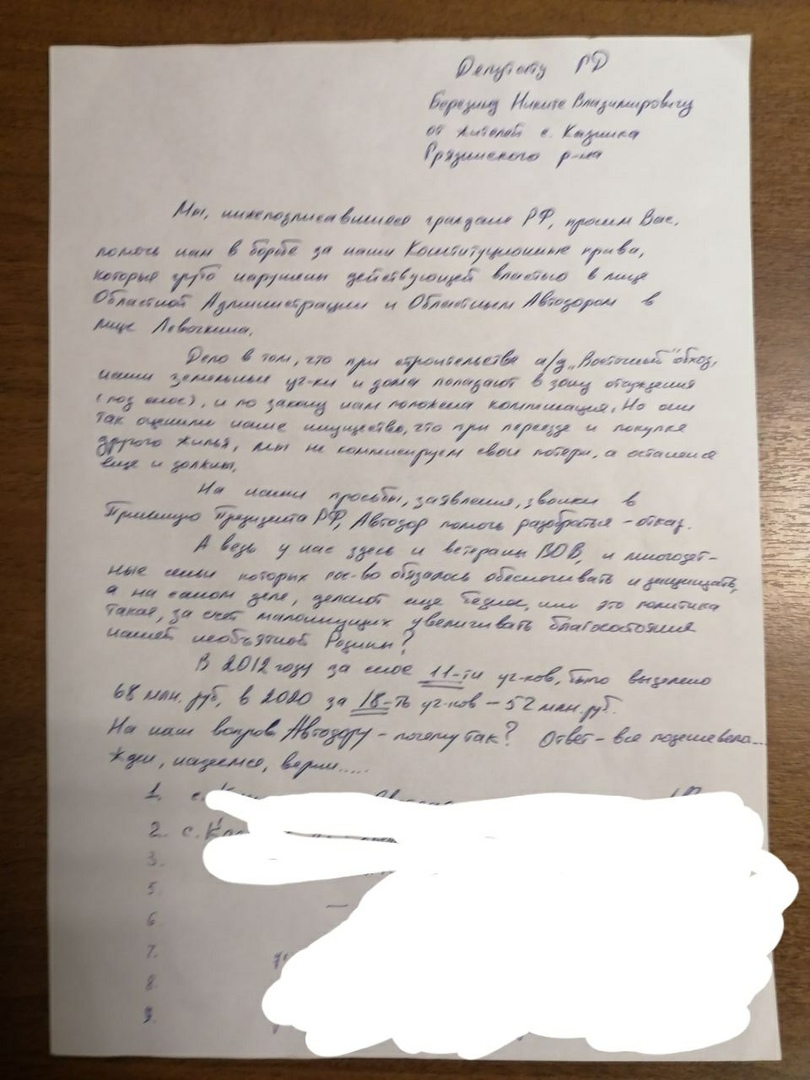 Депутату ГД
Березину Никите Владимировичу
от жителей с. Казинка
Грязинского р-на
Мы, нижеподписавшиеся граждане РФ, просим Вас,
помочь нам в борьбе за наши Конституционные права,
которые грубо нарушены действующей властью в лице
Областной Администрации и Областным Автодором в
лице Левочкина.
Дело в том, что при строительстве а/д „Восточный" обход,
наши земельные уч-ки и дома попадают в зону отчуждения
(под снос), и по закону нам положена компенсация. Но они
так оценили наше имущество, что при переезде и покупке
другого жилья, мы не компенсируем свои потери, а останемся
еще и должны.
На наши просьбы, заявления, звонки в
Приемную Президента РФ, Автодор помочь разобраться - отказ.
А ведь у нас здесь и ветераны ВОВ, и многодет-
ные семьи которых гос-во обязалось обеспечивать и защищать,
а на самом деле, делают еще беднее, или это политика
такая, за счет малоимущих увеличивать благосостояние
нашей необъятной Родины?
В 2012 году за снос 11-ти уч-ков, было выделено
68 млн. руб, в 2020 за 18-ть уч-ков - 52 млн. руб.
На наш вопрос Автодору - почему так? Ответ - все подешевело...
Ждем, надеемся, верим.....
1. с.
2. с.
3.
5.
6
7.
8.
9.